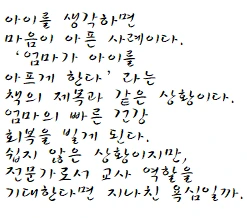 아이를 생각하면
마음이 아픈 사례이다.
'엄마가 아이를
아프게 한다' 라는
책의 제목과 같은 상황이다.
엄마의 빠른 건강
회복을 빌게 된다.
쉽지 않은 상황이지만,
전문가로서 교사 역할을
기대한다면 지나친 욕심일까.